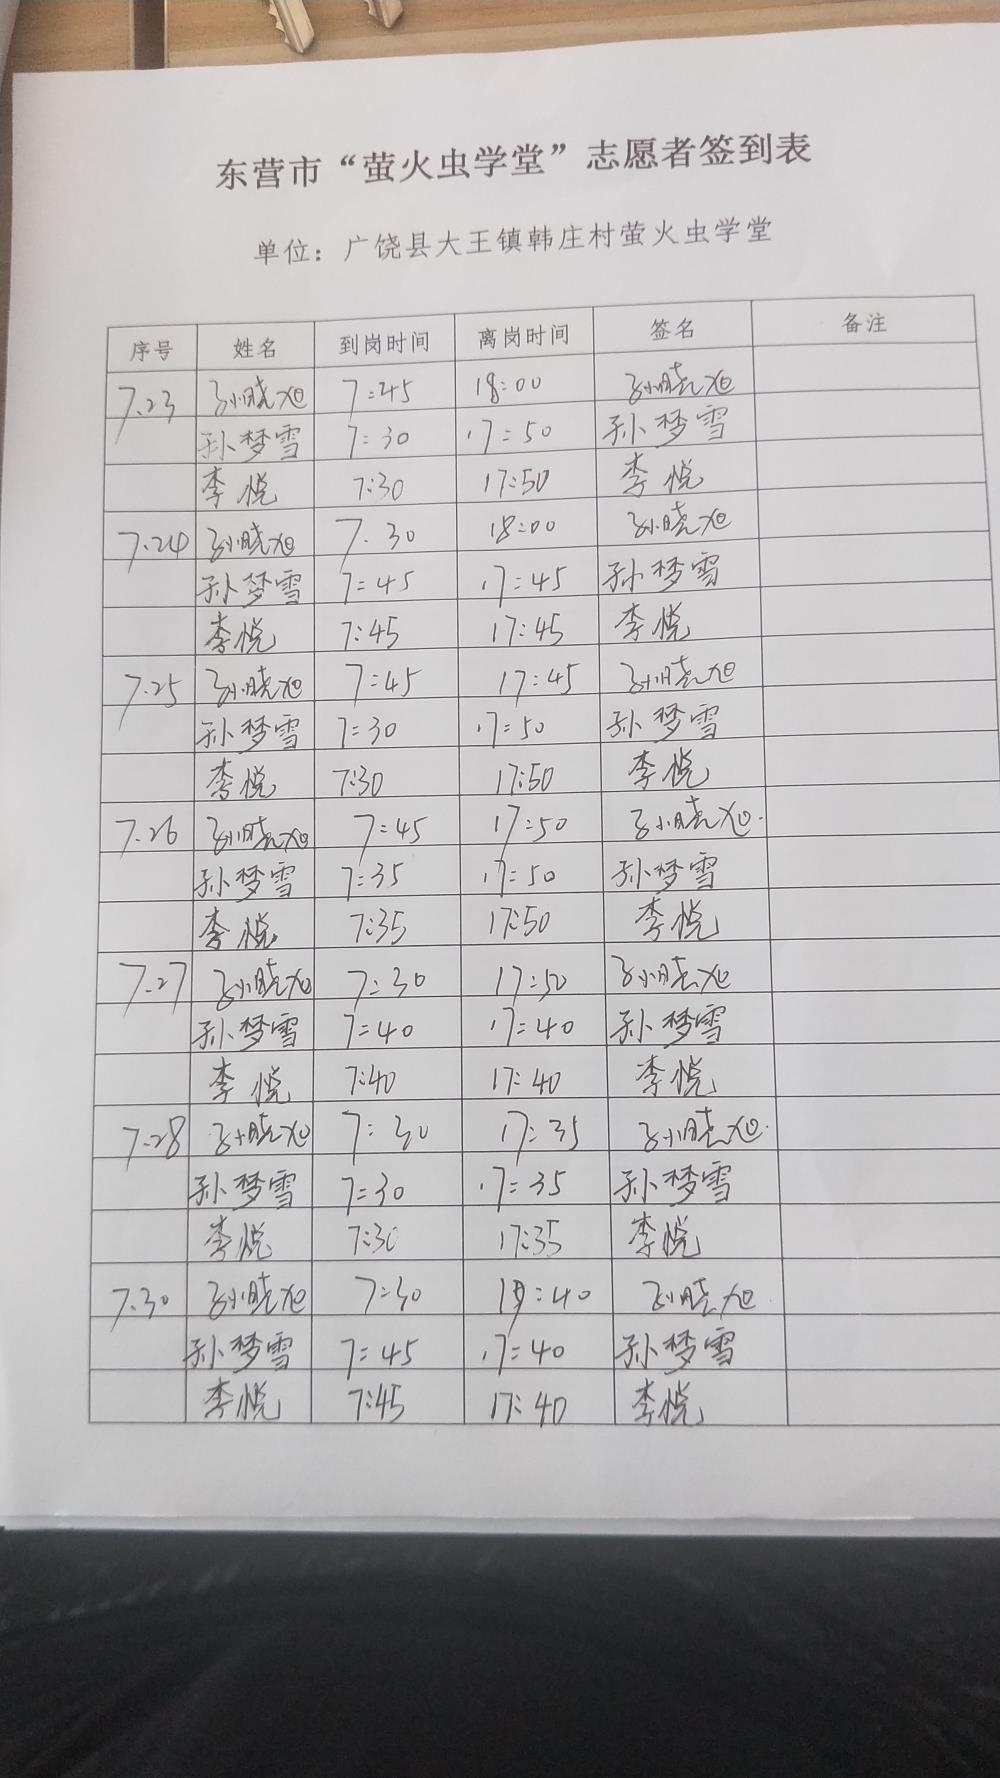 东营市“萤火虫学堂”志愿者签到表
单位：广饶县大王镇韩庄村萤火虫学堂
序号 姓名 到岗时间 离岗时间 签名 备注
7.23 孙晓旭 7:45 18:00 孙晓旭
孙梦雪 7:30 17:50 孙梦雪
李悦 7:30 17:50 李悦
7.24 孙晓旭 7:30 18:00 孙晓旭
孙梦雪 7:45 17:45 孙梦雪
李悦 7:45 17:45 李悦
7.25 孙晓旭 7:45 17:45 孙晓旭
孙梦雪 7:30 17:50 孙梦雪
李悦 7:30 17:50 李悦
7.26 孙晓旭 7:45 17:50 孙晓旭
孙梦雪 7:35 17:50 孙梦雪
李悦 7:35 17:50 李悦
7.27 孙晓旭 7:30 17:50 孙晓旭
孙梦雪 7:40 17:40 孙梦雪
李悦 7:40 17:40 李悦
7.28 孙晓旭 7:30 17:35 孙晓旭
孙梦雪 7:30 17:35 孙梦雪
李悦 7:30 17:35 李悦
7.30 孙晓旭 7:30 孙晓旭
孙梦雪 7:45 17:40 孙梦雪
李悦 7:45 17:40 李悦